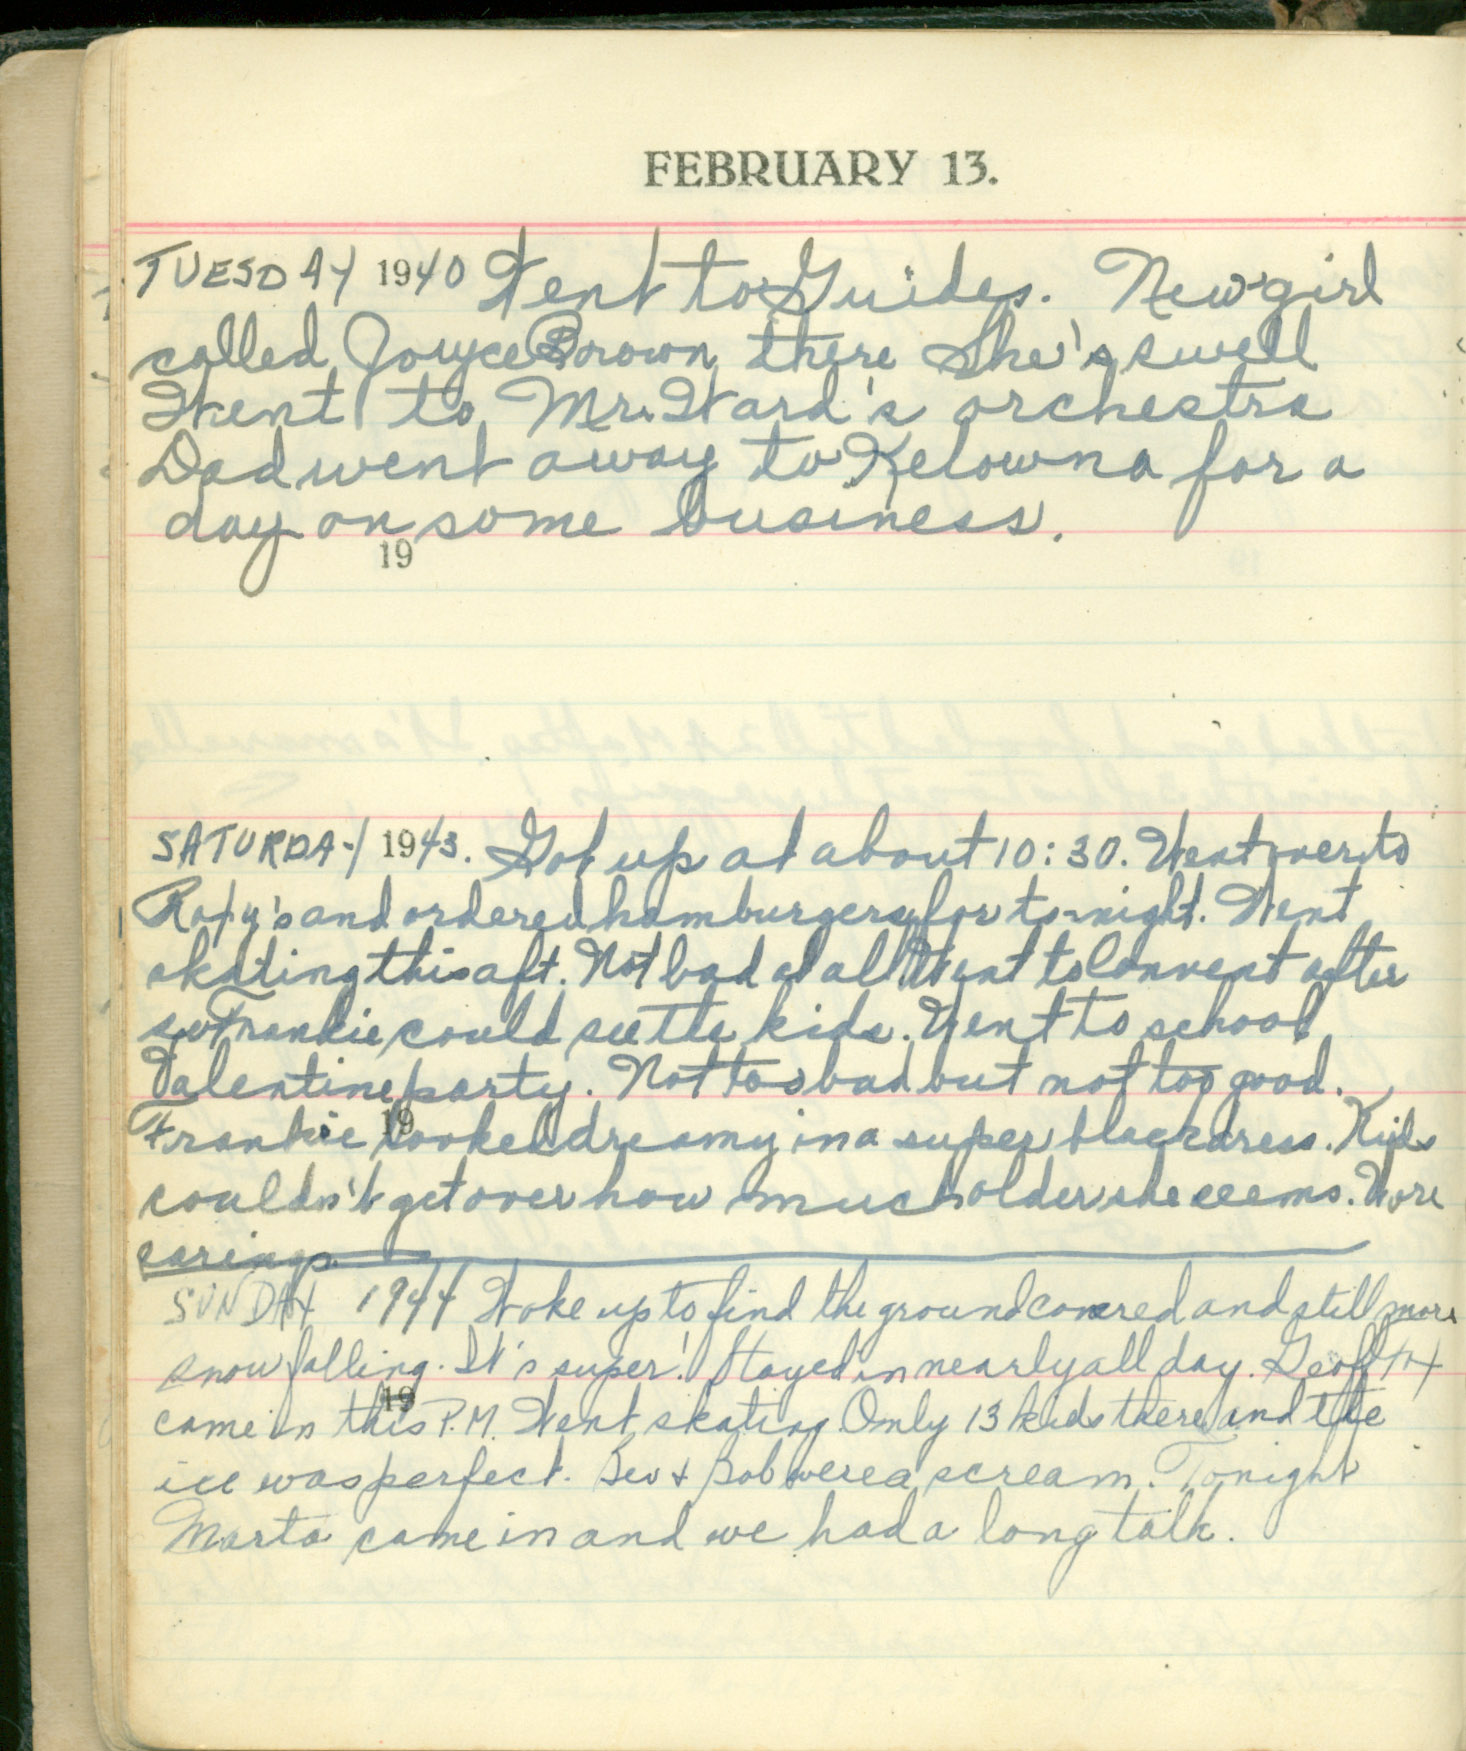 FEBRUARY 13.
TUESDAY 1940 Went to Guides. New girl
called Joyce Brown there She's swell
Went to Mr. Ward's orchestra
Dad went away to Kelowna for a
day on some business.
19
SATURDAY 1943. Got up at about 10:30. Went over to
Roxy's and ordered hamburgers for to-night. Went
skating this aft. Not bad at all Went to Convent after
so Frankie could see the kids. Went to school
Valentine party. Not too bad but not too good.
19
Frankie looked dreamy in a super black dress. Kids
couldn't get over how much older she seems. Wore
earings.
SUNDAY 1944 Woke up to find the ground covered and still more
snow falling. It's super! Stayed in nearly all day. Geoff
19
came in this P.M. Went skating Only 13 kids there and the
ice was perfect. Bev + Bob were a scream. Tonight
Marta came in and we had a long talk.